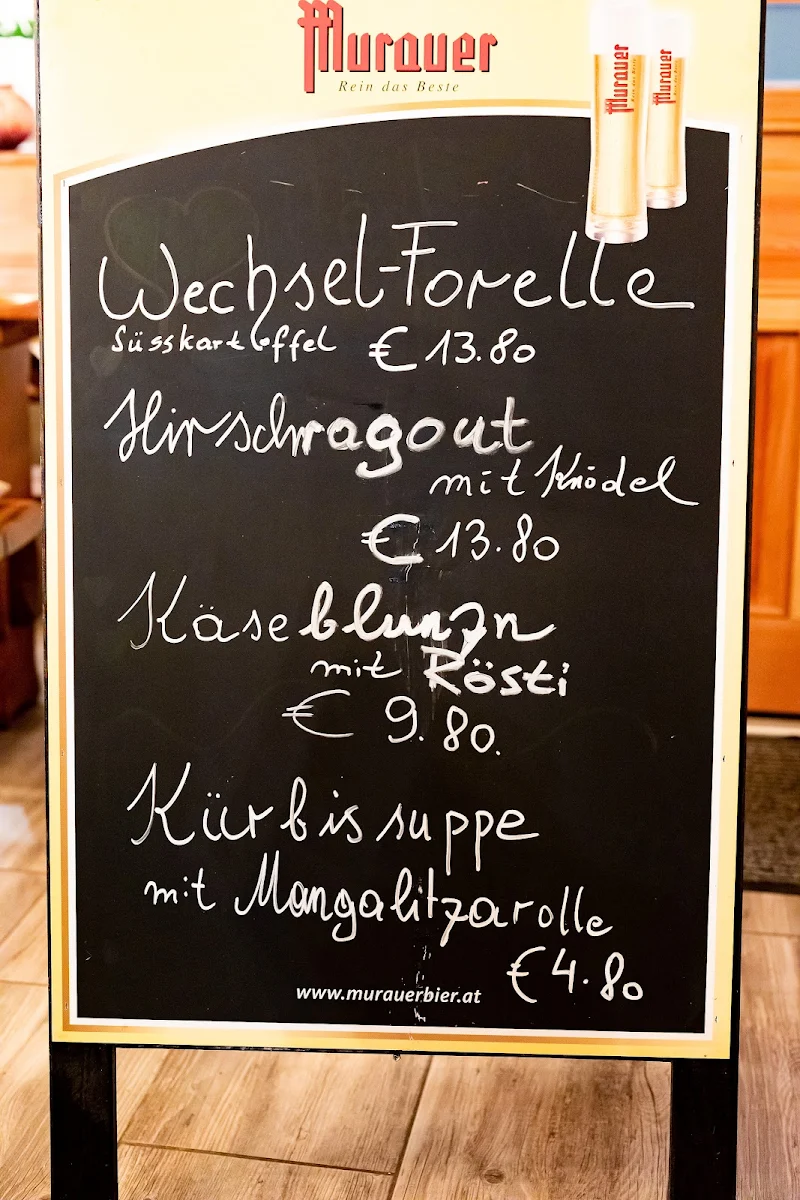 Murauer
Rein das Beste
Murauer
Murauer
Wechsel-Forelle
Süsskartoffel € 13.80
Hirschragout
mit Knödel
€ 13.80
Käseblunzn
mit Rösti
€ 9.80.
Kürbissuppe
mit Mangalitzarolle
€ 4.80
www.murauerbier.at